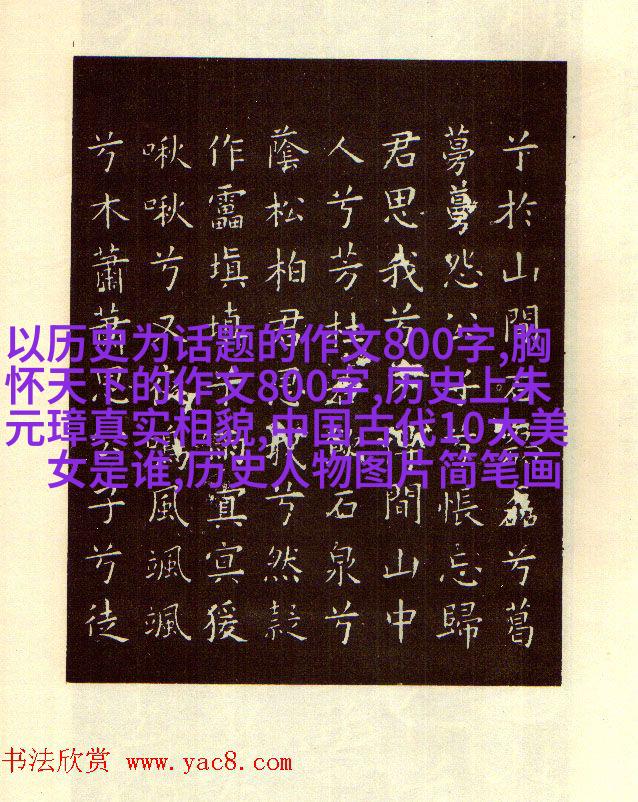 兮於山間石磊兮葛
蔓蔓怨公子悵忘歸
君思我兮間山中
人兮芳杜若飲石泉兮
蔭松柏君思我兮然疑
作靁填填兮雨冥冥猨
啾啾兮又鳴風颯颯
兮木蕭蕭思公子兮徒
以历史为话题的作文800字,胸
怀天下的作文800字,历史上朱
元璋真实相貌,中国古代10大美
女是谁,历史人物图片简笔画
书法欣赏 www.yac8.com